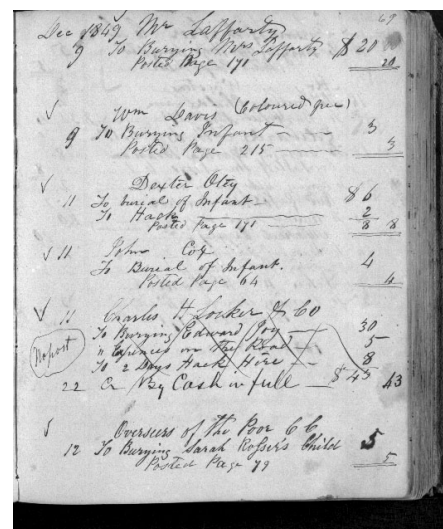 69
Dec 1849 Mr Lafferty
9 To Burying Mrs Lafferty $20
Posted Page 171 20
✓ Wm Davis (Coloured
9 To Burying Infant 3
Posted Page 215 3
✓ Dexter Otey
11 To burial of Infant $6
To Hack 2
Posted Page 171 8 8
✓ 11 John Cox
To Burial of Infant. 4
Posted Page 64 4
✓ 11 Charles H Locker & Co
To Burying Edward 30
" Expences on the Road 5
No post To 2 Days Hack Hire 8
22 Cr By Cash in full $43 43
✓ Overseers of the Poor C C
12 To Burying Sarah Rosser's Child 5
Posted Page 79 5